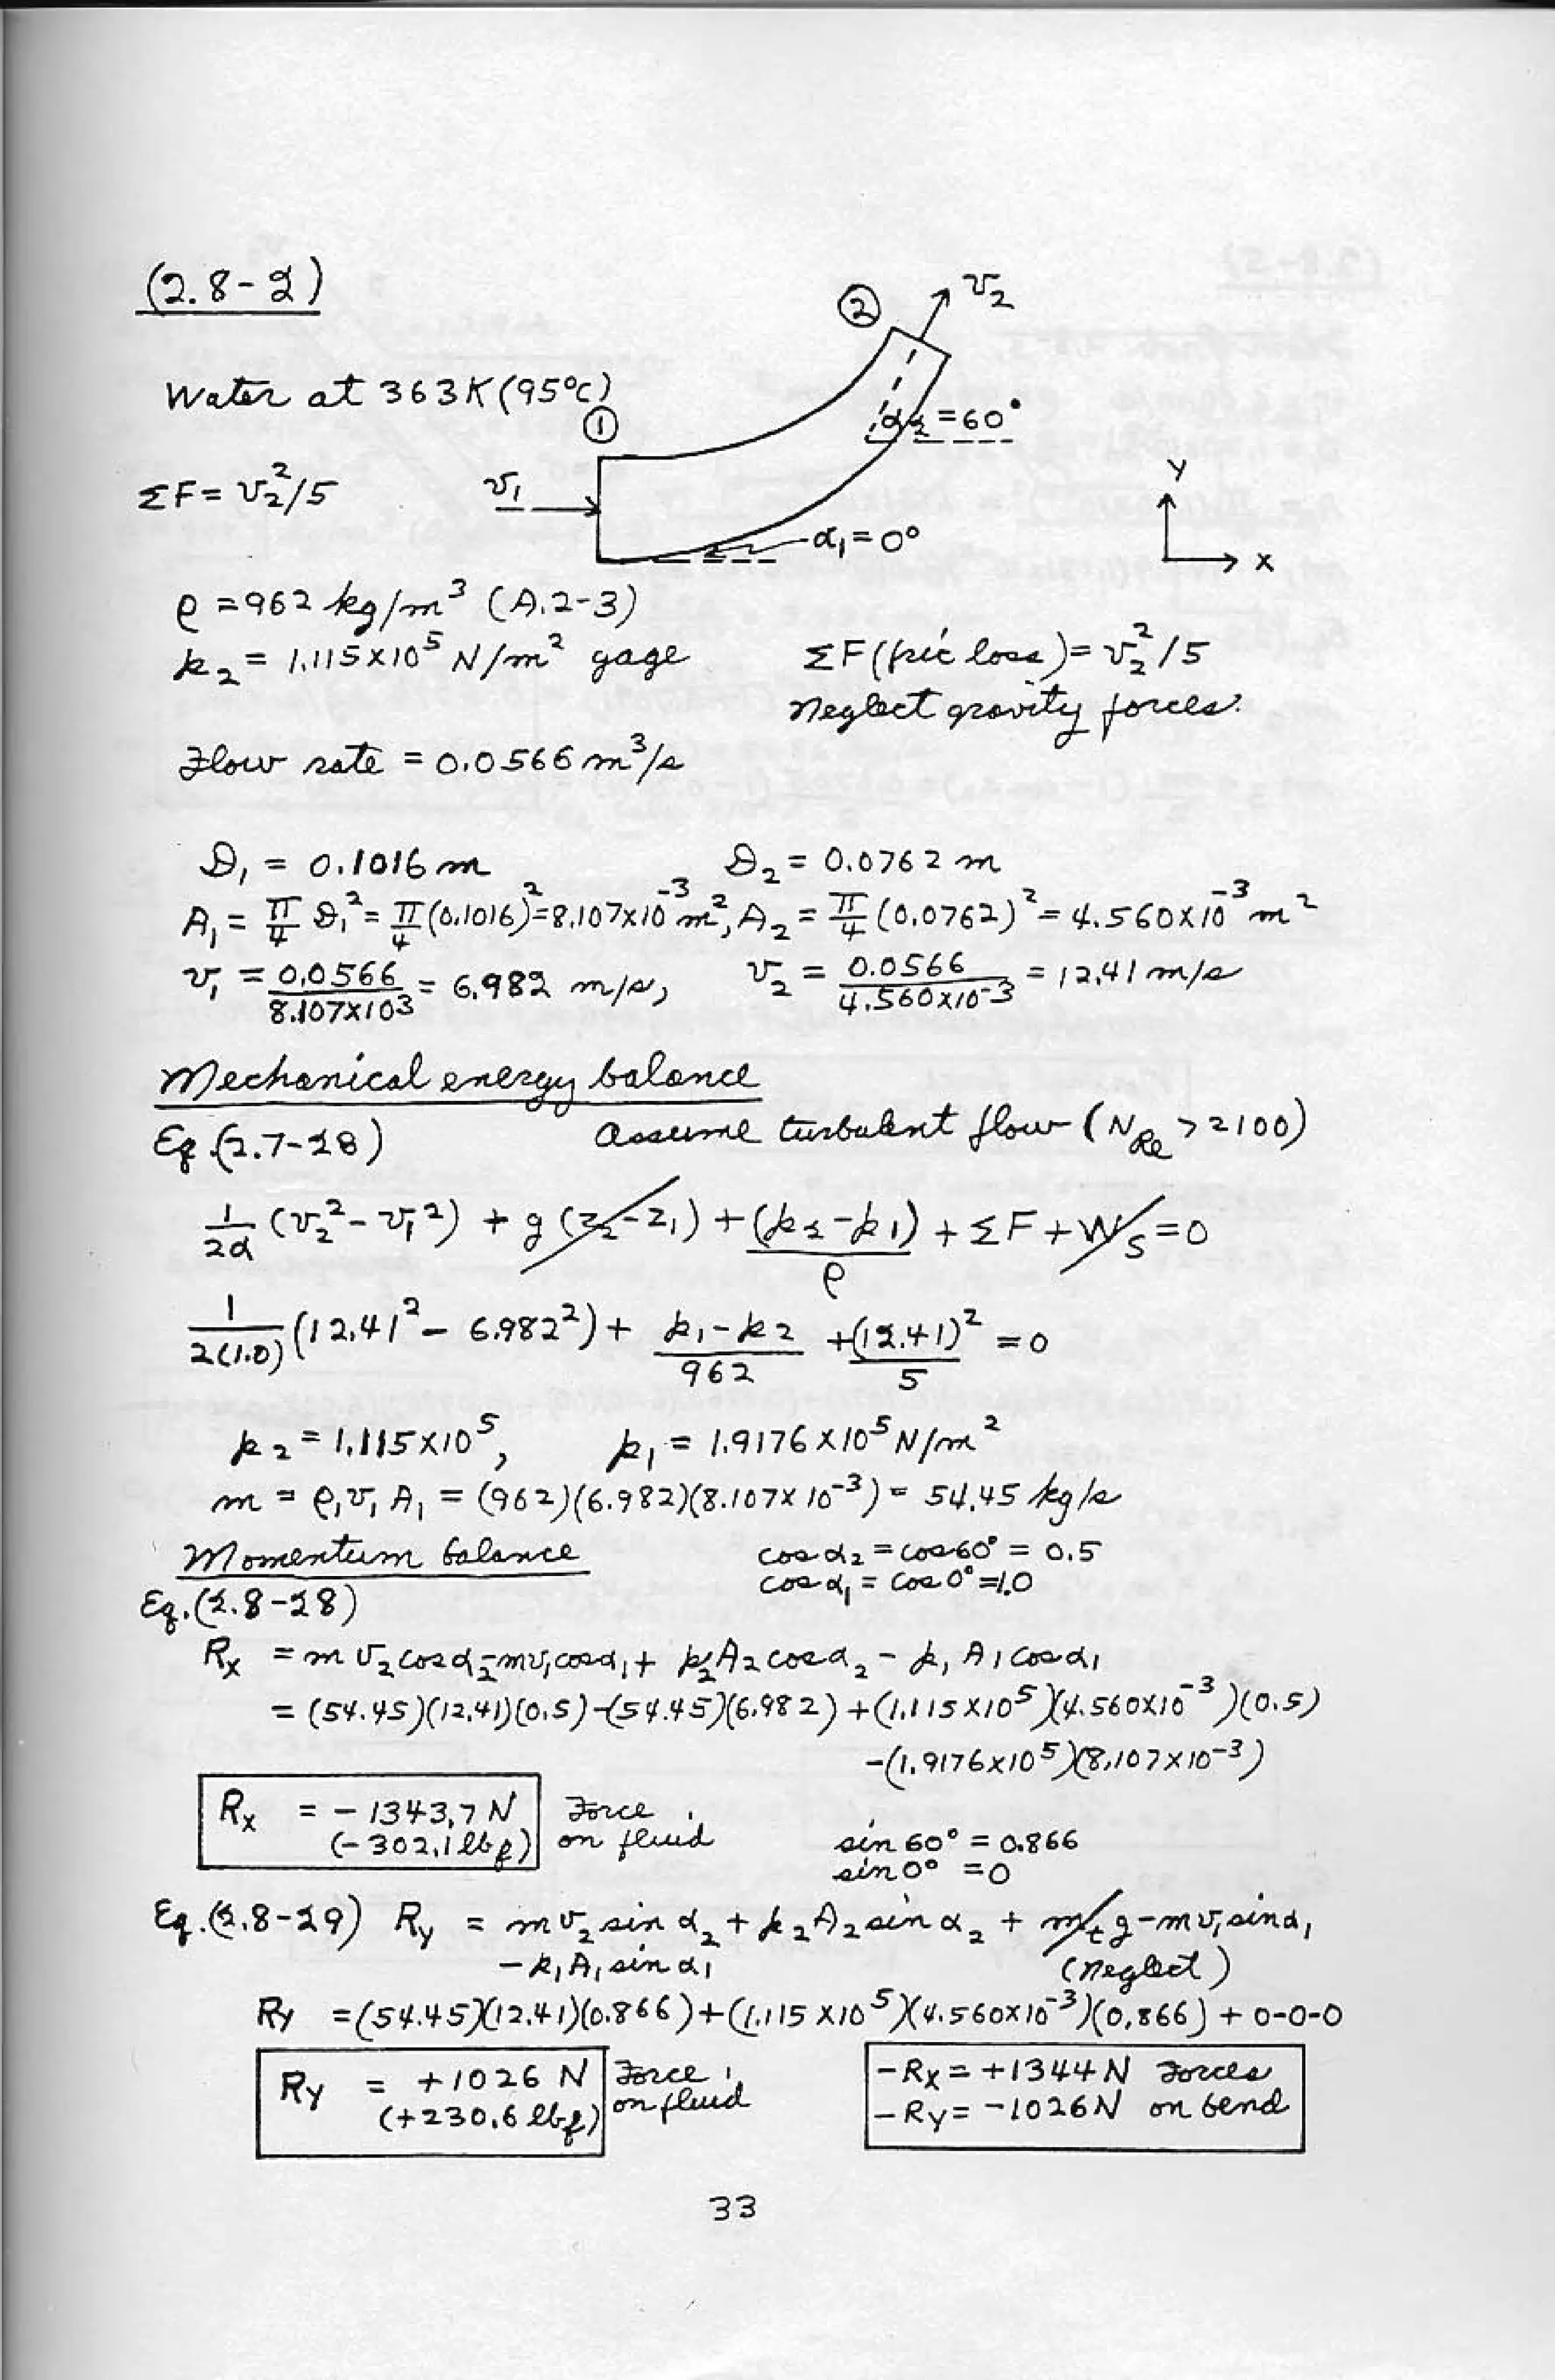 (2.8-2)
② v₂
Water at 363K (95°C)
①
α₂ = 60°
ΣF = v₂²/5
v₁
Y
α₁ = 0°
X
ρ = 962 kg/m³ (A.2-3)
p₂ = 1.115×10⁵ N/m² gage
ΣF (fric loss) = v₂²/5
Neglect gravity forces.
Flow rate = 0.0566 m³/s
D₁ = 0.1016 m D₂ = 0.0762 m
A₁ = π/4 D₁² = π/4 (0.1016)² = 8.107×10⁻³ m², A₂ = π/4 (0.0762)² = 4.560×10⁻³ m²
v₁ = 0.0566/8.107×10³ = 6.982 m/s, v₂ = 0.0566/4.560×10⁻³ = 12.41 m/s
Mechanical energy balance
Eq (2.7-28) Assume turbulent flow (N_Re > 2100)
1/2α (v₂² - v₁²) + g(z₂ - z₁) + (p₂ - p₁)/ρ + ΣF + W_S = 0
1/2(1.0) (12.41² - 6.982²) + p₁ - p₂/962 + (12.41)²/5 = 0
p₂ = 1.115×10⁵, p₁ = 1.9176×10⁵ N/m²
m = ρ₁v₁A₁ = (962)(6.982)(8.107×10⁻³) = 54.45 kg/s
Momentum balance cos α₂ = cos 60° = 0.5
cos α₁ = cos 0° = 1.0
Eq. (2.8-28)
Rx = m v₂ cos α₂ - m v₁ cos α₁ + p₂A₂ cos α₂ - p₁A₁ cos α₁
= (54.45)(12.41)(0.5) - (54.45)(6.982) + (1.115×10⁵)(4.560×10⁻³)(0.5)
-(1.9176×10⁵)(8.107×10⁻³)
Rx = -1343.7 N Force
(-302.1 lbf) on fluid
sin 60° = 0.866
sin 0° = 0
Eq. (2.8-29) Ry = m v₂ sin α₂ + p₂A₂ sin α₂ + m_t g - m v₁ sin α₁
- p₁A₁ sin α₁ (neglect)
Ry = (54.45)(12.41)(0.866) + (1.115×10⁵)(4.560×10⁻³)(0.866) + 0-0-0
Ry = +1026 N Force
(+230.6 lbf) on fluid
-Rx = +1344 N Forces
-Ry = -1026 N on bend
33